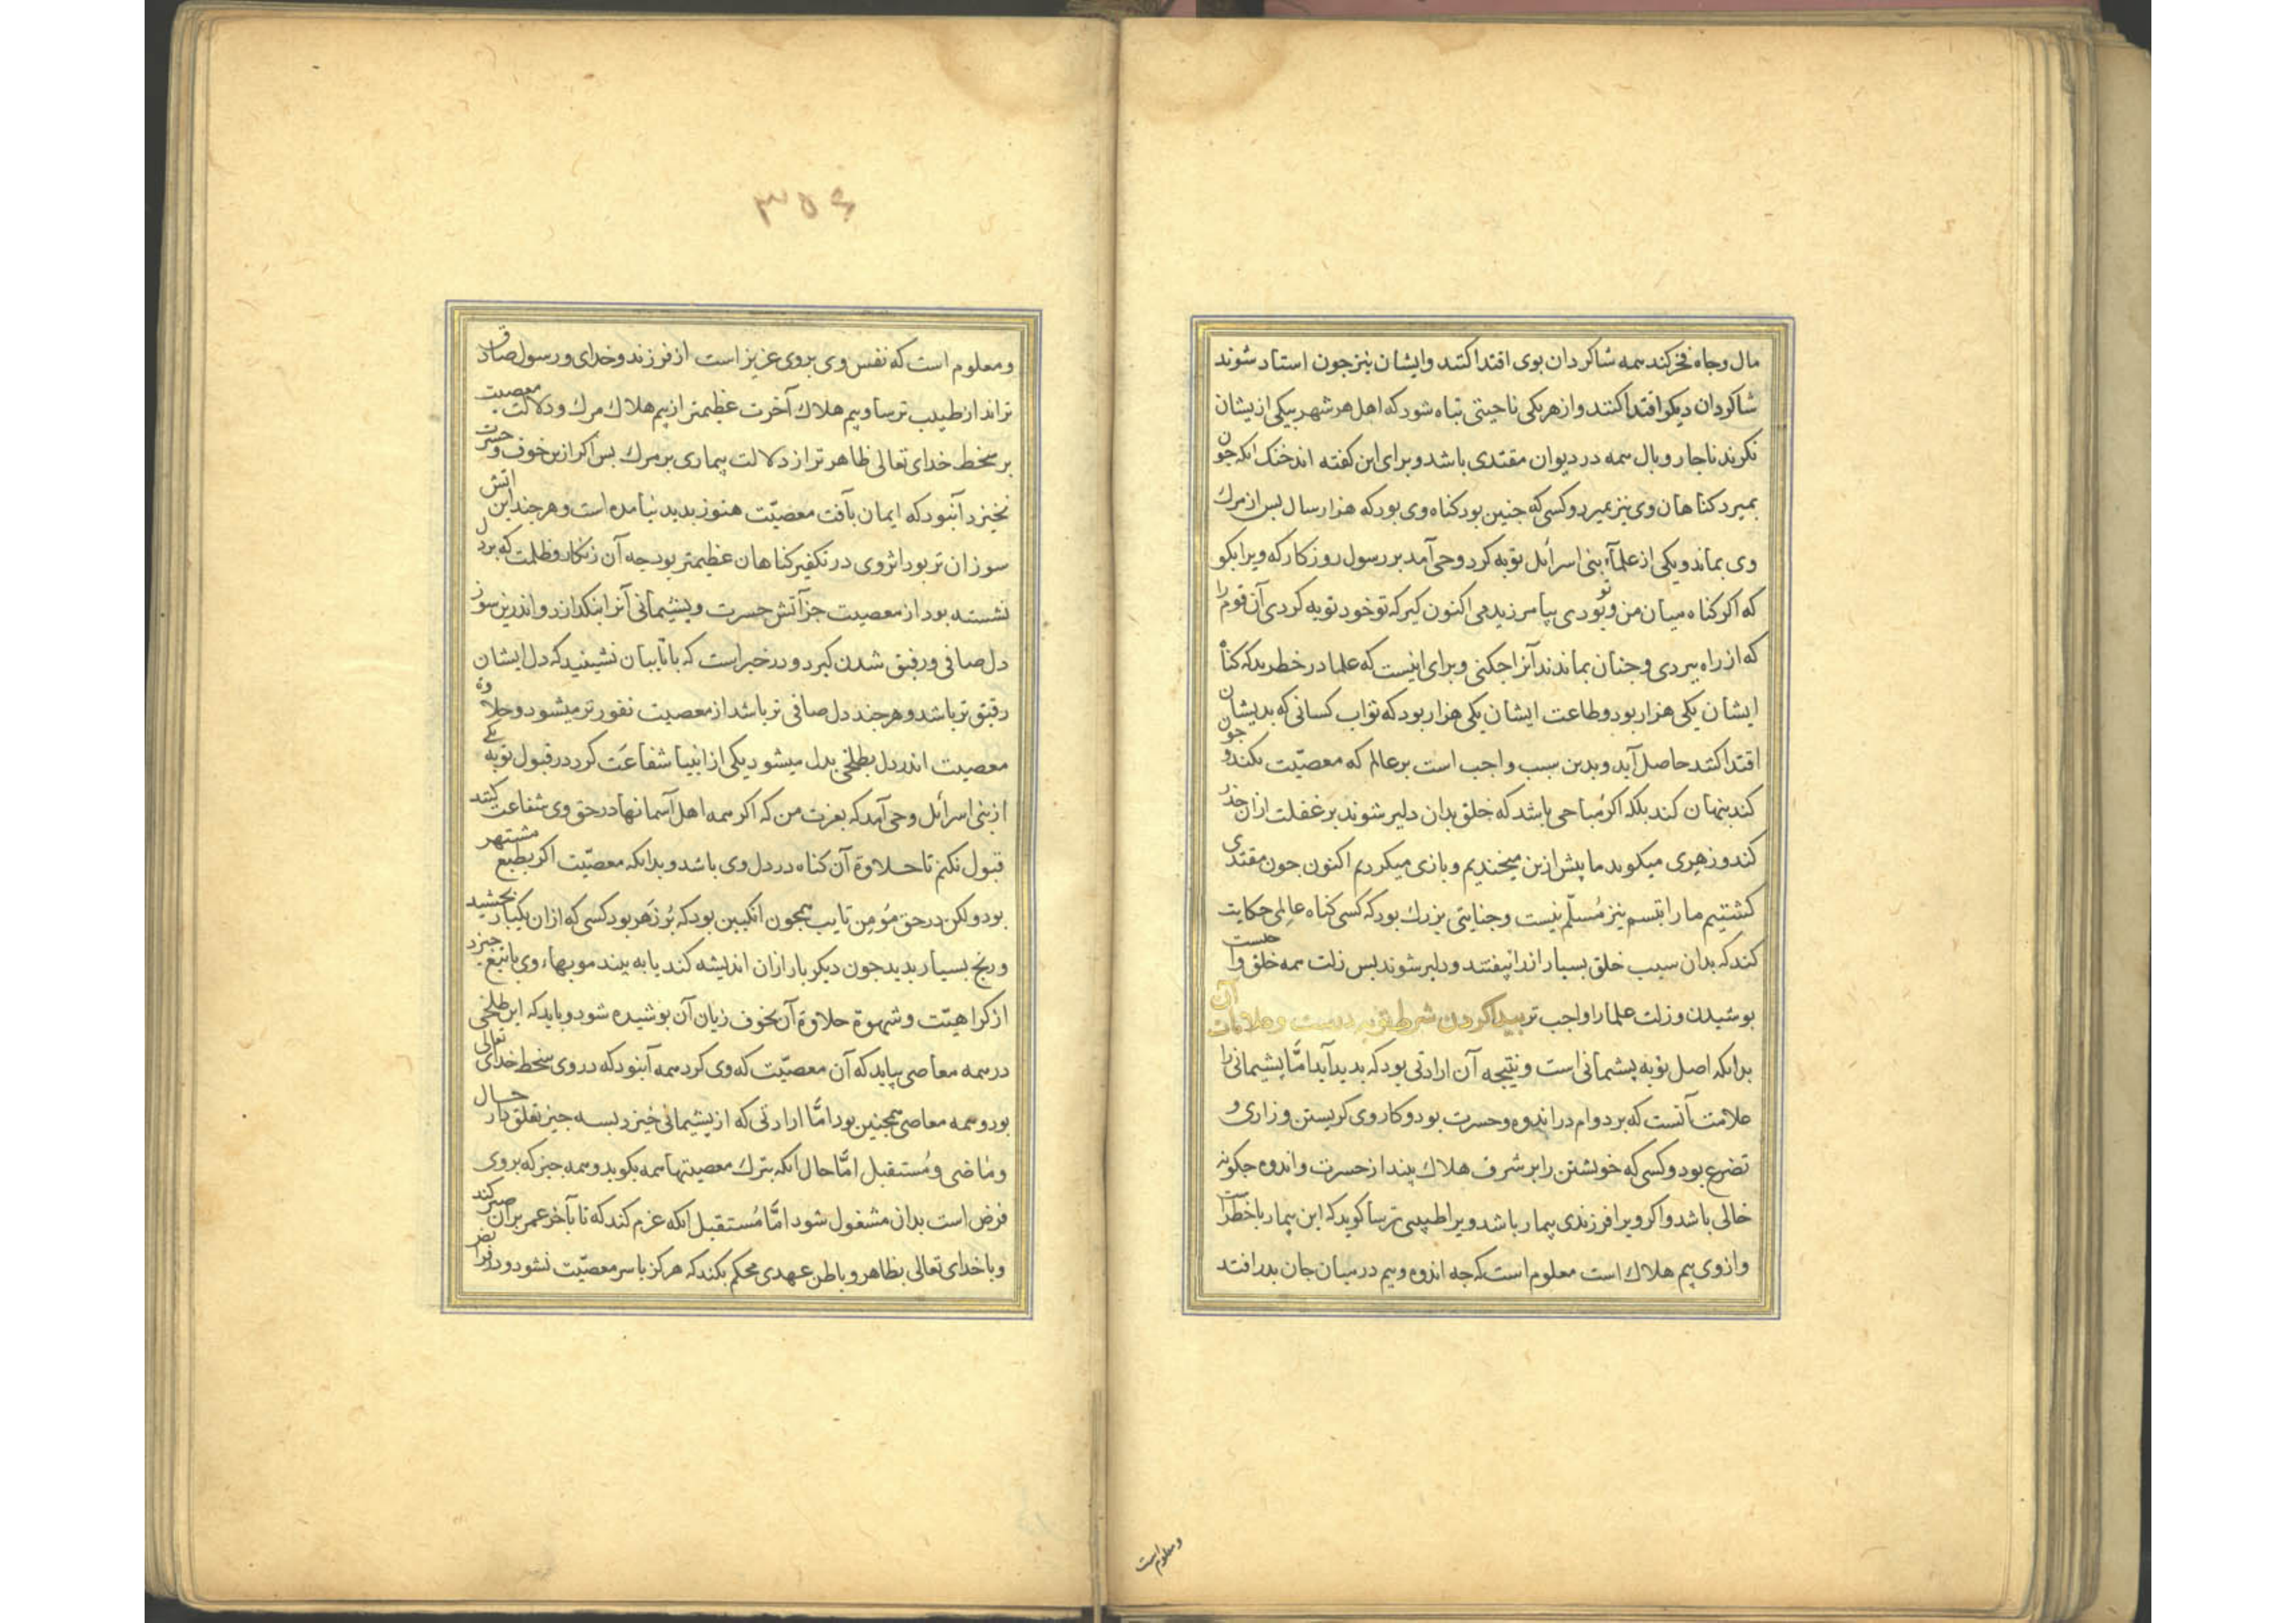 مال و جاه فخر کند همه شاکردان بوی اقتدا کنند و ایشان نیز جون استاد شوند
شاکردان دیکر اقتدا کنند و از هر یکی ناحیتی تباه شود که اهل هر شهر بیکی ازیشان
نکرند ناجار وبال همه در دیوان مقتدی باشد و برای این کفته اند خنک انکه جون
بمیرد کناهان وی نیز بمیرد و کسی که جنین بود کناه وی بود که هزار سال بس از مرك
وی بماند و یکی از علمآء بنی اسرائل توبه کرد وحی آمد بر رسول روزکار که ویرا بکو
که اکر کناه میان من و تو بودی بیامرزیدمی اکنون کیر که تو خود توبه کردی آن قوم را
که از راه ببردی و جنان بماندند آنرا جکنی و برای اینست که علما در خطرند که کناه
ایشان یکی هزار بود و طاعت ایشان یکی هزار بود که ثواب کسانی که بدیشان
اقتدا کنند حاصل آید و بدین سبب واجب است بر عالم که معصیّت نکند و جون
کند بنهان کند بلکه اکر مُباحی باشد که خلق بدان دلیر شوند بر غفلت ازان حذر
کند و زهری میکوید ما پیش ازین میخندیم و بازی میکردیم اکنون جون مقتدی
کشتیم ما را تبسم نیز مُسلّم نیست و جنایتی بزرك بود که کسی کناه عالِمی حکایت
کند که بدان سبب خلق بسیار از راه بیفتند و دلیر شوند بس زلت همه خلق واجبست
بوشیدن و زلت علما را واجب تر بیدا کردن شرط توبه درست و علامات آن
بدانکه اصل توبه پشیمانی است و نتیجه آن ارادتی بود که بدید آید امّا پشیمانی را
علامت آنست که بر دوام در اندوه و حسرت بود و کار وی کریستن و زاری و
تضرع بود و کسی که خویشتن را بر شرف هلاك بیند از حسرت و اندوه جکونه
خالی باشد و اکر ویرا فرزندی بیمار باشد و یرا طبیبی ترسا کوید که این بیمار با خطرست
و از وی بیم هلاك است معلوم است که جه اندوه و بیم در میان جان بدر افتد
و معلوم است
۳۵۶
و معلوم است که نفس وی بر وی عزیز است از فرزند و خدای و رسول صادق
تراند از طبیب ترسا و بیم هلاك آخرت عظیمتر از بیم هلاك مرك و دلالت معصیت
بر سخط خدای تعالی ظاهر تر از دلالت بیماری بر مرك بس اکر ازین خوف و حسرت
نخیزد آنبود که ایمان بآفت معصیّت هنوز بدید نیامده است و هر جند این اتش
سوزان تر بود اثر وی در تکفیر کناهان عظیمتر بود جه آن زنکار و ظلمت که بر دل
نشسته بود از معصیت جز آتش حسرت و پشیمانی آنرا بنکدازد و اندرین سوز
دل صافی و رقیق شدن کیرد و در خبر است که با تایبان نشینید که دل ایشان
رقیق تر باشد و هر جند دل صافی تر باشد از معصیت نفور تر میشود و حلاوة
معصیت اندر دل بطلخی بدل میشود یکی از انبیا شفاعَت کرد در قبول توبه یکی
از بنی اسرائل وحی آمد که بعزت من که اکر همه اهل آسمانها در حق وی شفاعت کنند
قبول نکنم تا حلاوة آن کناه در دل وی باشد و بدانکه معصیّت اکر بطبع مشتهر
بود ولکن در حق مُومِن تایب همجون انکبین بود که بُر زهر بود کسی که ازان یکبار بخشید
و رنج بسیار بدید جون دیکر بار ازان اندیشه کند یا به بیند موبهاء وی با تیغ خیزد
از کراهیّت و شهوة حلاوة آن بخوف زیان آن بوشیده شود و باید که این طلخی
در همه معاصی بیابد که آن معصیّت که وی کرد همه آنبود که در وی سخط خدای تعالی
بود و همه معاصی همجنین بود امّا ارادتی که از پشیمانی خیزد بسه جیز تعلق دارد حال
و ماضی و مُستقبل امّا حال انکه بترك معصیتها همه بکوید و همه جیز که بر وی
فرض است بدان مشغول شود امّا مُستقبل انکه عزم کند که تا بآخر عمر بر آن صبر کند
و با خدای تعالی بظاهر و باطن عهدی محکم بکند که هرکز با سر معصیّت نشود و در